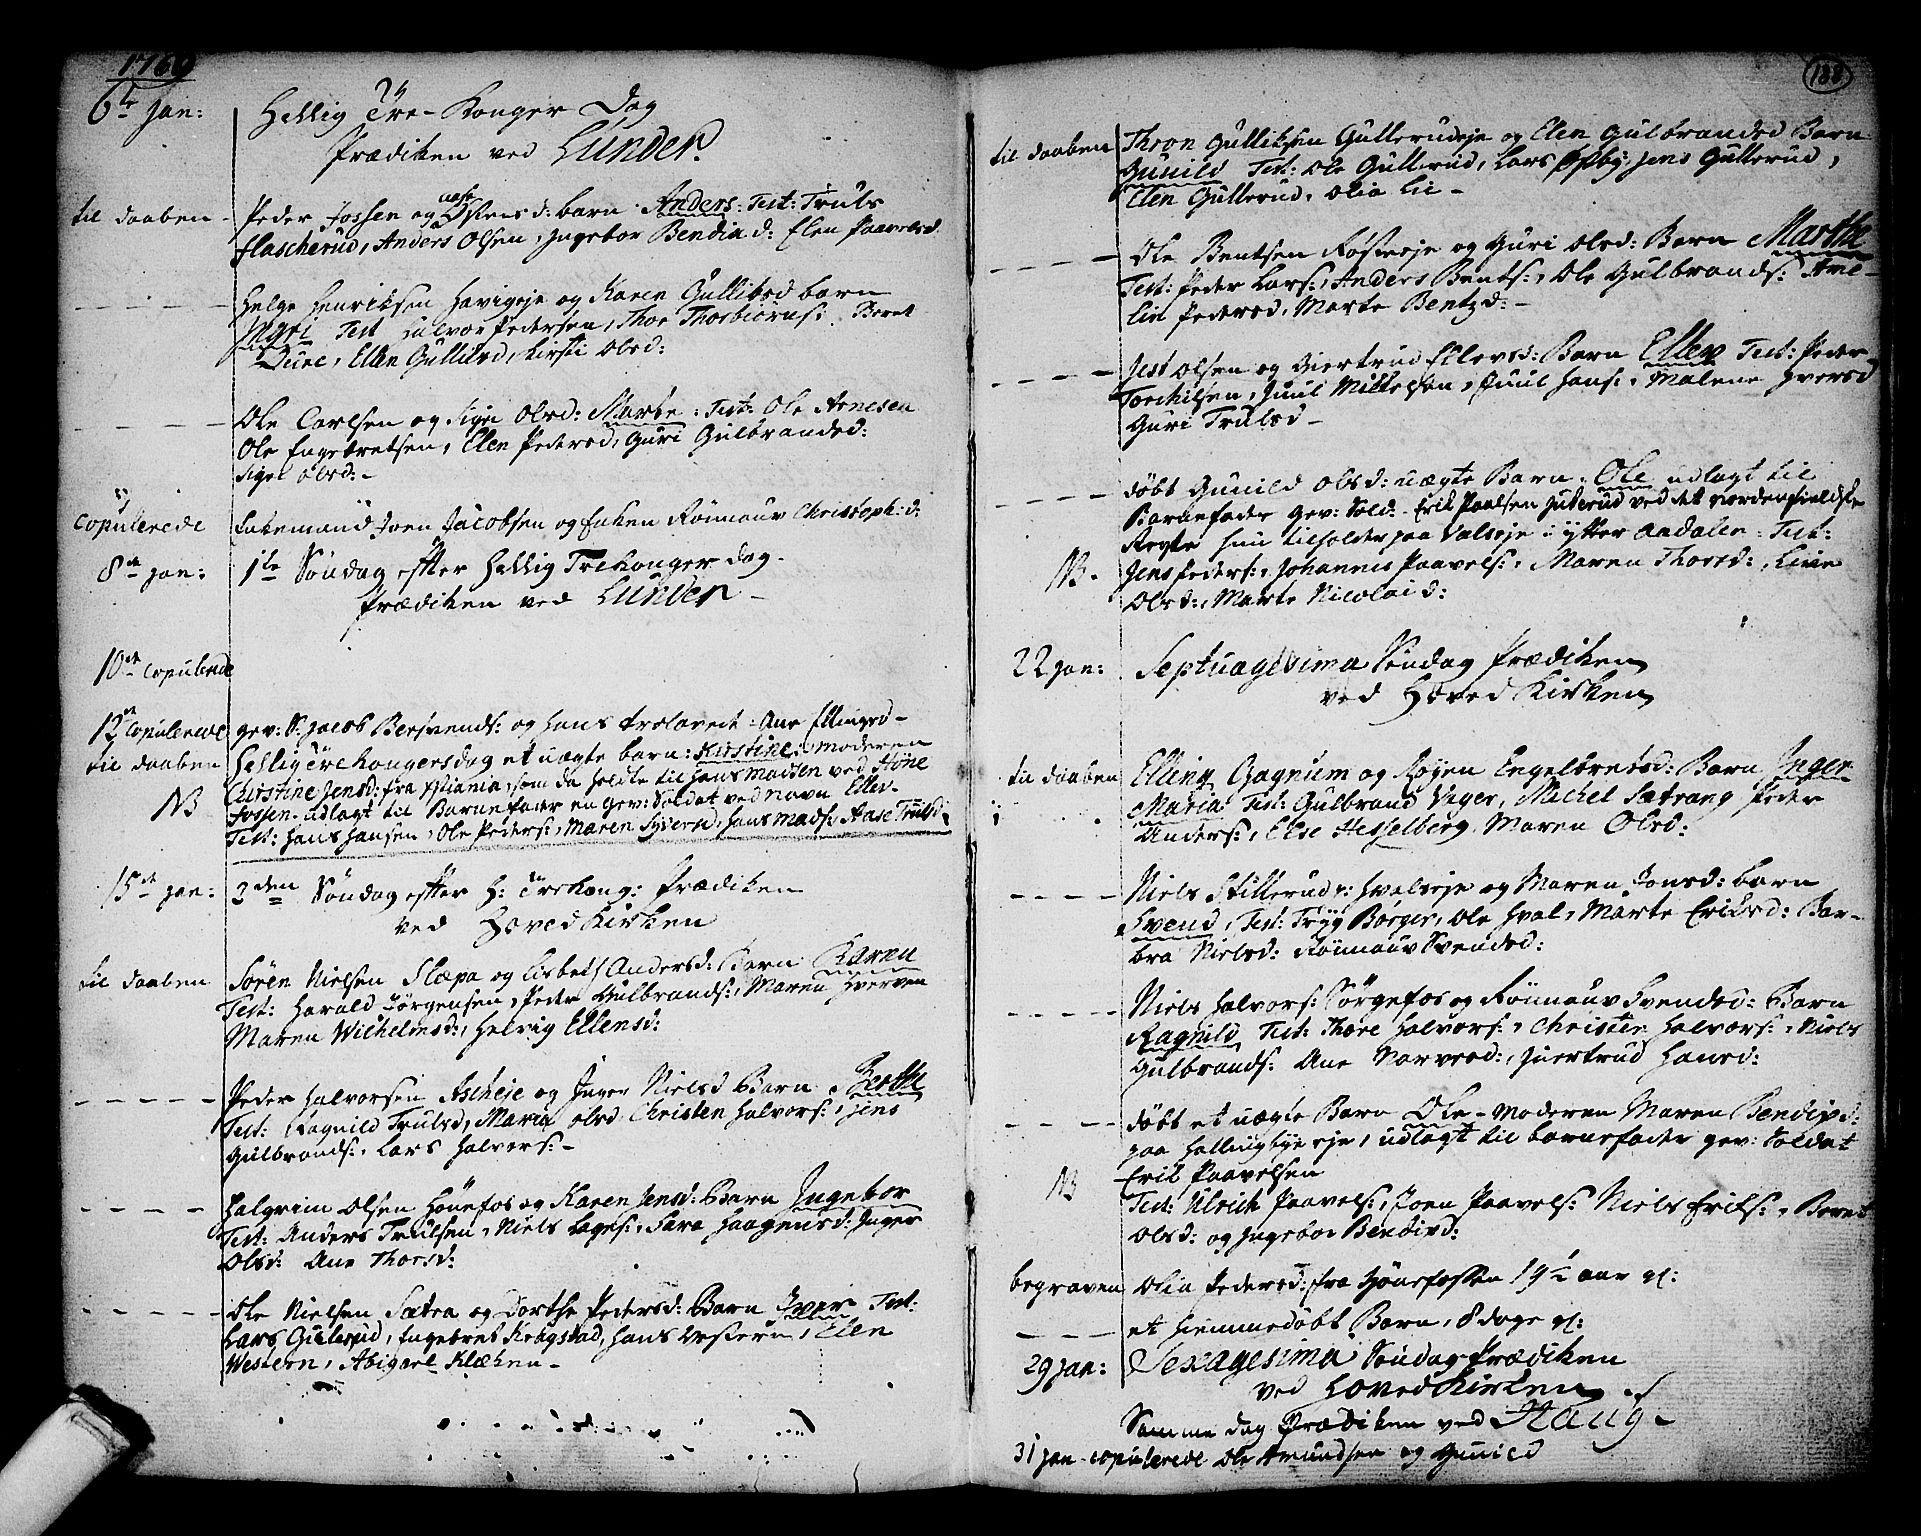 1769
6te Jan: Hellig Tre-Konger Dag
Prædiken ved Lunder.
til daaben - Peder Jossen og Aase Ostensd: barn Anders: Test: Truls
Flascherud, Anders Olsen, Ingebor Bendixd: Elen Paavelsd
Helge Henriksen Havigeje og Karen Gulliksd barn
Ingri Test Halvor Pedersen, Thor Thorbiørns: Beret
Elen Gulliksd, Kirsti Olsd:
Ole Carlsen og Sigri Olsd: Marte. Test: Ole Arnesen
Ole Engebretsen, Elen Pedersd, Guri Gulbrandsd:
Sigri Olsd: -
Copulerede Enkemand Joen Jacobsen og Enken Rønnauv Christoph:d:
8de Jan: 1te Søndag efter Hellig Trekonger dag.
Prædiken ved Lunder -
10de Copulerede
12te Copulerede gev: S: Jacob Bersvends: og hans trolovede Ane Ellingsd -
til daaben Hellig Tre Kongersdag et uægte barn: Kirstine: moderen
NB Christine Jensd: fra Xstiania, som da holdte til hans madsen ved Høne
Fossen. udlagt til Barnefader en gev: Soldat ved navn Ellev.
Test: Hans Hansen, Ole Peders:, Maren Syversd, Hans Mads: Aase Trulsd:
15de Jan: 2den Søndag efter H: Trekong: Prædiken
ved Hoved Kirken
til daaben Søren Nielsen Slæpa og Lisbeth Andersd: Barn Karen
Test: Harald Jørgensen, Peder Gulbrands:, Maren Hverven
Maren Wilhelmsd:, Helvig Ellensd:
Peder Halvorsen Ascheje og Inger Nielsd Barn Berthe
Test: Ragnild Trulsd, Maria Olsd Christen Halvors:, Jens
Gulbrands:, Lars Halvors: -
Halgrim Olsen Hønefos og Karen Jensd: Barn Ingebor
Test: Anders Trulsen, Niels Lages:, Sara Haagensd: Inger
Olsd: Ane Thorsd:
Ole Nielsen Sætra og Dorthe Pedersd: Barn Iver Test:
Lars Gullerud, Engebret Kragstad, Hans Western, Elen
Western, Abigael Klæken -
188
til daaben Thron Gulliksen Gullerudeje og Elen Gulbrandsd Barn
Gunild Test: Ole Gullerud, Lars Opby, Jens Gullerud,
Elen Gullerud, Olia Lie -
Ole Bentsen Røsseeje og Guri Olsd: Barn Marthe
Test: Peder Lars:, Anders Bents:, Ole Gulbrands: Ane
Lie Pedersd, Marte Bentzd: -
Jest Olsen og Giertrud Ellevsd: Barn Ellev Test: Peder
Torchilsen, Juul Mikkelsen, Juul Hans:, Malene Iversd
Guri Trulsd -
døbt Gunild Olsd: uægte Barn. Ole udlagt til
Barnefader gev: Sold: Erik Paalsen ved det nordenfieldske
Regte hun tilholder paa Valseje i ytter Aadalen. Test:
NB. Jens Peders:, Johannes Paavels:, Maren Thorsd:, Live
Olsd:, Marte Nicolaid:
22 Jan: Septuagesima Søndag Prædiken
ved Hoved Kirken
til daaben Elling Gagnum og Røyen Engelbretsd: Barn Inger
Maria Test: Gulbrand Veger, Michel Sætrang Peder
Anders:, Else Hesselberg Maren Olsd:
Niels Stillerud: Hvalseje og Maren Jonsd: barn
Svend, Test: Tryg Borger, Ole Hval, Marte Eriksd: Bar-
bra Nielsd: Rønnauv Svendsd:
Niels Halvors: Sørgefos og Rønnauv Svendsd: Barn
Ragnild Test: Thore Halvors:, Christen Halvors:, Niels
Gulbrands: Ane Narvesd:, Giertrud Hansd:
døbt et uægte Barn Ole - Moderen Maren Bendixd:
paa Hallingbyeeje, udlagt til barnefader gev: Soldat
NB Erik Paavelsen
Test: Ulrich Paavels:, Joen Paavels: Niels Eriks:, Beret
Olsd: og Ingebor Bendixd:
begraven Olia Pedersd: fra Hønefossen 19½ aar gl:
et Hiemmedøbt Barn, 8 dage gl:
29 Jan: Sexagesima Søndag Prædiken
ved Hoved Kirken
Samme dag Prædiken ved Haug -
31 Jan - copulerede Ole Amundsen og Gunild